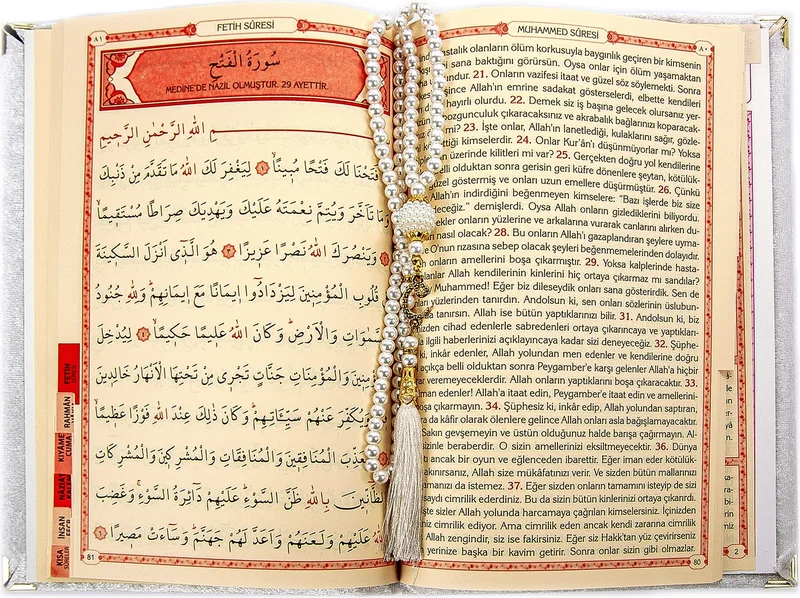 MUHAMMED SÛRESİ
٨٠
hastalık olanların ölüm korkusuyla baygınlık geçiren bir kimsenin
sana baktığını görürsün. Oysa onlar için ölüm yaşamaktan
21. Onların vazifesi itaat ve güzel söz söylemekti. Sonra
Allah'ın emrine sadakat gösterselerdi, elbette kendileri
hayırlı olurdu. 22. Demek siz iş başına gelecek olursanız yer-
bozgunculuk çıkaracaksınız ve akrabalık bağlarınızı koparacak-
mi? 23. İşte onlar, Allah'ın lanetlediği, kulaklarını sağır, gözle-
ettiği kimselerdir. 24. Onlar Kur'ân'ı düşünmüyorlar mı? Yoksa
üzerinde kilitleri mi var? 25. Gerçekten doğru yol kendilerine
belli olduktan sonra gerisin geri küfre dönenlere şeytan, kötülük-
güzel göstermiş ve onları uzun emellere düşürmüştür. 26. Çünkü
Allah'ın indirdiğini beğenmeyen kimselere: "Bazı işlerde biz size
demişlerdi. Oysa Allah onların gizlediklerini biliyordu.
melekler onların yüzlerine ve arkalarına vurarak canlarını alırken du-
nasıl olacak? 28. Bu onların Allah'ı gazaplandıran şeylere uyma-
O'nun rızasına sebep olacak şeyleri beğenmemelerinden dolayıdır.
onların amellerini boşa çıkarmıştır. 29. Yoksa kalplerinde hasta-
olanlar Allah kendilerinin kinlerini hiç ortaya çıkarmaz mı sandılar?
Muhammed! Eğer biz dileseydik onları sana gösterirdik. Sen de
yüzlerinden tanırdın. Andolsun ki, sen onları sözlerinin üslubun-
tanırsın. Allah ise bütün yaptıklarınızı bilir. 31. Andolsun ki, biz
cihad edenlerle sabredenleri ortaya çıkarıncaya ve yaptıkları-
haberlerinizi açıklayıncaya kadar sizi deneyeceğiz. 32. Şüphe-
ki, inkâr edenler, Allah yolundan men edenler ve kendilerine doğru
açıkça belli olduktan sonra Peygamber'e karşı gelenler Allah'a hiçbir
zarar veremeyeceklerdir. Allah onların yaptıklarını boşa çıkaracaktır. 33.
iman edenler! Allah'a itaat edin, Peygamber'e itaat edin ve amellerini-
boşa çıkarmayın. 34. Şüphesiz ki, inkâr edip, Allah yolundan saptıran,
da kâfir olarak ölenlere gelince Allah onları asla bağışlamayacaktır.
Sakın gevşemeyin ve üstün olduğunuz halde barışa çağırmayın. Al-
sizinle beraberdir. O sizin amellerinizi eksiltmeyecektir. 36. Dünya
ancak bir oyun ve eğlenceden ibarettir. Eğer iman eder kötülük-
sakınırsanız, Allah size mükâfatınızı verir. Ve sizden bütün mallarınızı
da istemez. 37. Eğer sizden onların tamamını isteyip de sizi
cimrilik ederdiniz. Bu da sizin bütün kinlerinizi ortaya çıkarırdı.
İşte sizler Allah yolunda harcamaya çağrılan kimselersiniz. İçinizden
cimrilik ediyor. Ama cimrilik eden ancak kendi zararına cimrilik
Allah zengindir, siz ise fakirsiniz. Eğer siz Hakk'tan yüz çevirirseniz
yerinize başka bir kavim getirir. Sonra onlar sizin gibi olmazlar.
80
2
FETİH SÛRESİ
٨١
سُورَةُ الْفَتْحِ
MEDİNE'DE NAZİL OLMUŞTUR. 29 AYETTİR.
اللهِ الرَّحْمٰنِ الرَّحِيمِ
فَتَحْنَا لَكَ فَتْحًا مُبِينًا ١ لِيَغْفِرَ لَكَ اللهُ مَا تَقَدَّمَ مِنْ ذَنْبِكَ
وَمَا تَأَخَّرَ وَيُتِمَّ نِعْمَتَهُ عَلَيْكَ وَيَهْدِيَكَ صِرَاطًا مُسْتَقِيمًا
وَيَنْصُرَكَ اللهُ نَصْرًا عَزِيزًا ٣ هُوَ الَّذِي أَنْزَلَ السَّكِينَةَ
قُلُوبِ الْمُؤْمِنِينَ لِيَزْدَادُوا إِيمَانًا مَعَ إِيمَانِهِمْ وَلِلّٰهِ جُنُودُ
السَّمٰوَاتِ وَالْأَرْضِ وَكَانَ اللهُ عَلِيمًا حَكِيمًا ٤ لِيُدْخِلَ
الْمُؤْمِنِينَ وَالْمُؤْمِنَاتِ جَنَّاتٍ تَجْرِي مِنْ تَحْتِهَا الْأَنْهَارُ خَالِدِينَ
وَيُكَفِّرَ عَنْهُمْ سَيِّئَاتِهِمْ وَكَانَ ذٰلِكَ عِنْدَ اللهِ فَوْزًا عَظِيمًا
وَيُعَذِّبَ الْمُنَافِقِينَ وَالْمُنَافِقَاتِ وَالْمُشْرِكِينَ وَالْمُشْرِكَاتِ
الظَّانِّينَ بِاللهِ ظَنَّ السَّوْءِ عَلَيْهِمْ دَائِرَةُ السَّوْءِ وَغَضِبَ
اللهُ عَلَيْهِمْ وَلَعَنَهُمْ وَأَعَدَّ لَهُمْ جَهَنَّمَ وَسَاءَتْ مَصِيرًا ٦
81
FETİH
SÛRESİ
RAHMAN
KIYAME
CUMA
NAZİAT
İNSAN
KISA
SÛRELER